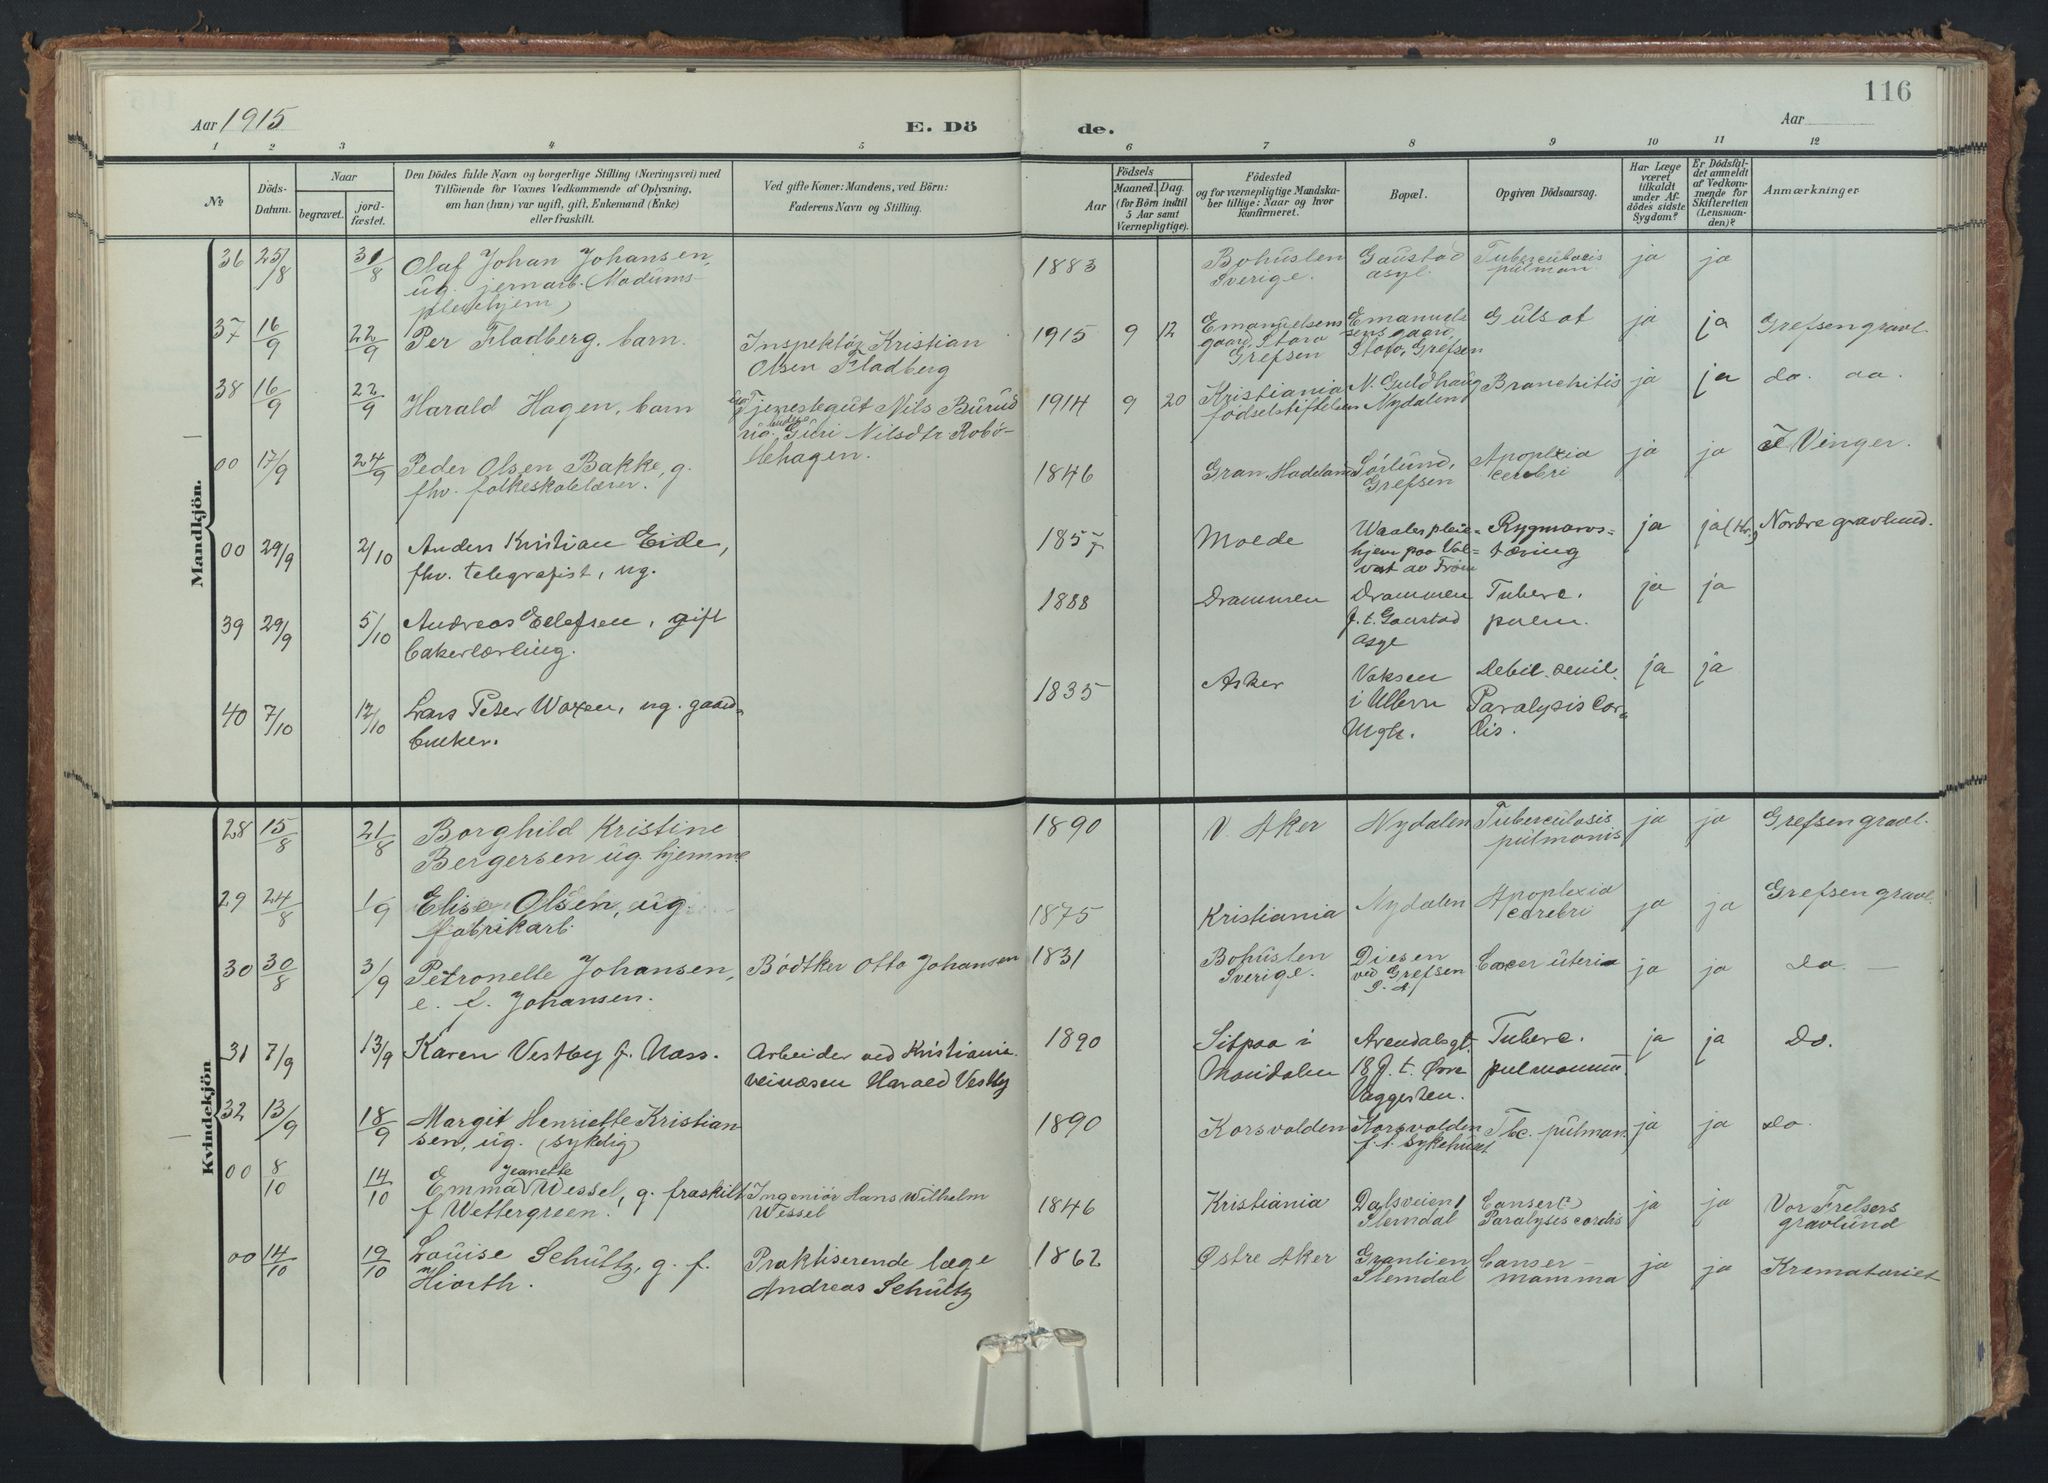 116
Aar 1915
E. Döde.
Aar
1 2 3 4 5 6 7 8 9 10 11 12
No
Döds-Datum.
Naar
begravet.
jord-fæstet.
Den Dödes fulde Navn og borgerlige Stilling (Næringsvei) med
Tilföiende for Voxnes Vedkommende af Oplysning,
om han (hun) var ugift, gift, Enkemand (Enke)
eller fraskilt.
Ved gifte Koner: Mandens, ved Börn:
Faderens Navn og Stilling.
Födsels
Aar
Maaned. Dag.
(for Börn indtil
5 Aar samt
Værnepligtige).
Födested
og for værnepligtige Mandska-
ber tillige: Naar og hvor
konfirmeret.
Bopæl.
Opgiven Dödsaarsag.
Har Læge
været
tilkaldt
under Af-
dödes sidste
Sygdom?
Er Dödsfal-
det anmeldt
af Vedkom-
mende for
Skifteretten
(Lensman-
den)?
Anmærkninger
Mandkjön.
36 25/8 31/8 Olaf Johan Johansen, 1883 Bohuslen Gaustad Tuberculocis ja ja
ug. jernarb. (Modums Sverige. asyl. pulman.
pleiehjem)
37 16/9 22/9 Per Fladberg, barn. Inspektör Kristian 1915 9 12 Emanuelsens Emanuel- Gulsot ja ja Grefsen gravl.
Olsen Fladberg gaard, Storo sens gaard,
Grefsen Storo, Grefsen
38 16/9 22/9 Harald Hagen, barn Tjenestegut Nils Burud 1914 9 20 Kristiania N. Guldhaug Bronchitis ja ja do. do.
Guri Nilsdtr Robö- födselstiftelsen Nydalen
lehagen.
00 17/9 24/9 Peder Olsen Bakke, g. 1846 Gran, Hadeland Sörlund, Apoplexia ja ja I Vinger.
fhv. folkeskolelærer. Grefsen cerebri
00 29/9 2/10 Anders Kristian Eide, 1857 Molde Waalerpleie- Rygmarvs- ja ja (Kr.) Nordre gravlund.
fhv. telegrafist, ug. hjem paa Vol- tæring
vat av Frön
39 29/9 5/10 Andreas Ellefsen, gift 1888 Drammen Drammen Tuberc. ja ja
bakerlærling. f. t. Gaustad pulm.
Asyl
40 7/10 12/10 Lars Peter Woxen, ug. gaard- 1835 Asker Voksen Debil. senil. ja ja
bruker. i Ullern Paralysis cor-
Mgh. dis.
Kvindekjön
28 15/8 21/8 Borghild Kristine 1890 V. Aker Nydalen Tuberculosis ja ja Grefsen gravl.
Bergersen ug. hjemme pulmonis
29 24/8 1/9 Elise Olsen, ug. 1875 Kristiania Nydalen Apoplexia ja ja Grefsen gravl.
fabrikarb. cerebri
30 30/8 3/9 Petronelle Johansen, Bødtker Otto Johansen 1831 Bohuslen Disen Cancer uteri ja ja do.
e. f. Johansen. Sverige. ved Grefsen
31 7/9 13/9 Karen Vestby f. Næss. Arbeider ved Kristiania 1890 Sitpaa i Arendalsgt. Tuberc. ja ja do.
veivæsen Harald Vestby Maridalen 18 f. t. pulmonum
32 13/9 18/9 Margit Henriette Kristian- 1890 Korsvolden Korsvolden Tbc. pulman. ja ja do.
sen, ug. (sykelig) f. t. Sykehuset
00 8/10 14/10 Emma Jeanette Wessel, g. fraskilt Ingeniör Hans Wilhelm 1846 Kristiania Dalsveien 1 Canser ja ja Vor Frelsers
f Wettergreen. Wessel Slemdal Paralysis cordis gravlund
00 14/10 19/10 Louise Schültz, g. f. Praktiserende læge 1862 Østre Aker Granlien Canser ja ja Krematoriet
Hiorth. Andreas Schültz Slemdal mamma